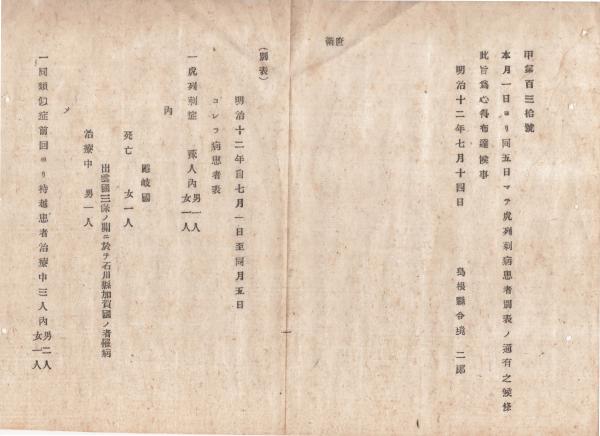 甲第百三拾號
本月一日ヨリ同五日マテ虎列剌病患者別表ノ通有之候條
此旨爲心得布達候事
明治十二年七月十四日
島根縣令境二郎
(別表)
明治十二年自七月一日至同月五日
コレラ病患者表
一虎列剌症 貳人內男一人女一人
內
隱岐國
死亡 女一人
出雲國三保ノ關ニ於テ石川縣加賀國ノ者罹病
治療中 男一人
〆
一同類似症前回ヨリ持越患者治療中三人內男二人女一人